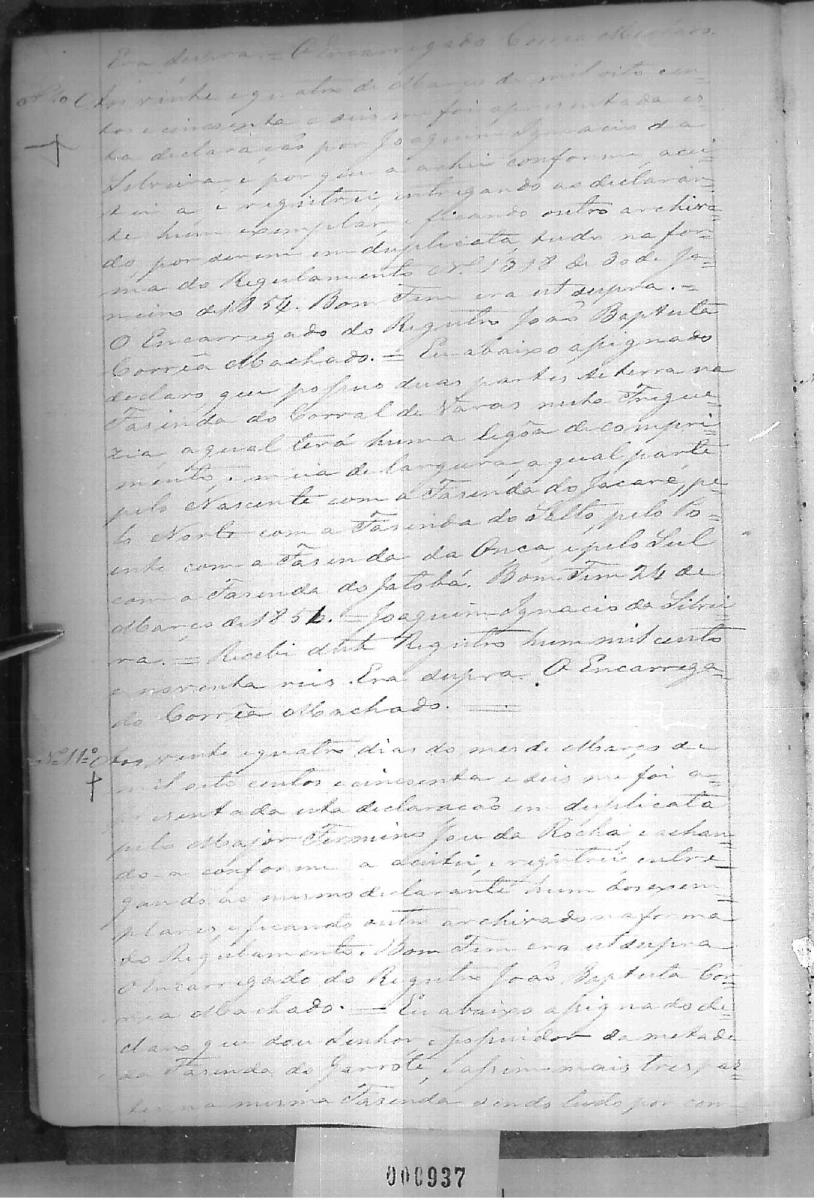 Era supra = O Encarregado Corrêa Machado.
Nº 10 Aos vinte e quatro de Março de mil oito cen=
tos e cincoenta e seis me foi apresentada es=
ta declaração por Joaquim Ignacio da
Silveira e por que a achei conforme, acei=
tei a, e registrei, entregando ao declaran=
te hum exemplar, e ficando outro archiva=
do, por serem em duplicata, tudo na for=
ma do Regulamento Nº 1318 de 30 de Ja=
neiro de 1854. Bom Fim era ut supra. =
O Encarregado do Registro João Baptista
Corrêa Machado. = Eu abaixo assignado
declaro que possuo duas partes de terra na
Fasenda do Corral de Varas nesta Fregue=
zia a qual terá huma legoa de compri=
mento, e meia de largura, a qual parte
pelo Nascente com a Fasenda do Jacaré, pe=
lo Norte com a Fasenda do Salto, pelo Po=
ente com a Fasenda da Onça, e pelo Sul
com a Fasenda do Jatobá. Bom Fim 24 de
Março de 1856. = Joaquim Ignacio da Silvei
ra. = Recebi deste Registro hum mil cento
e noventa reis. Era supra. O Encarrega=
do Corrêa Machado. =
Nº 11º Aos vinte e quatro dias do mes de Março de
mil oito centos e cincoenta e seis me foi a=
presentada esta declaração em duplicata
pelo Major Fermino José da Rocha, e achan=
do-a conforme a aceitei, e registrei, entre=
gando ao mesmo declarante hum dos exem=
plares, e ficando outro archivado na forma
do Regulamento. Bom Fim era ut supra
O Encarregado do Registro João Baptista Cor=
rêa Machado. = Eu abaixo assignado de=
claro que sou senhor, e possuidor da metade
da Fasenda do Garrote, e assim mais tres par=
tes na mesma Fasenda sendo tudo por com
000937